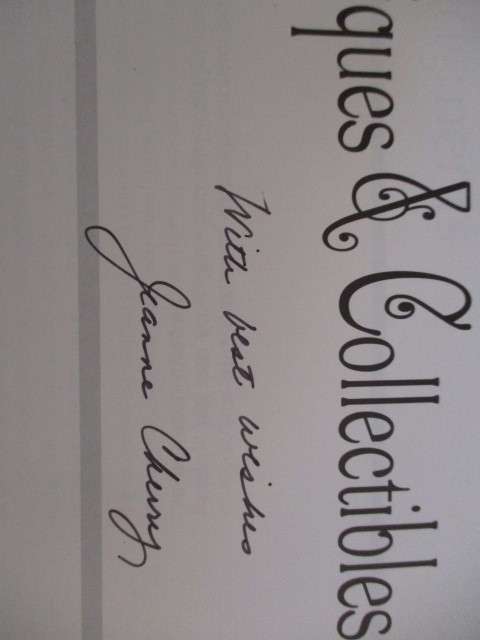 ques & Collectibles
With best wishes
Jeanne Cherry